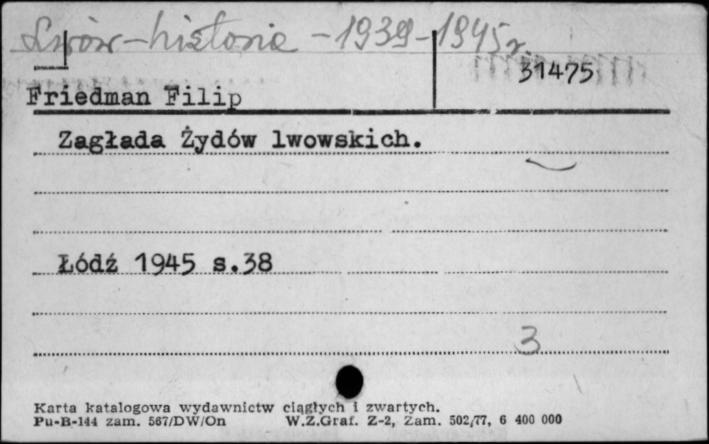 Lwów - historia - 1939-1945 r.
31475
Friedman Filip
Zagłada Żydów lwowskich.
Łódź 1945 s.38
3
Karta katalogowa wydawnictw ciągłych i zwartych.
Pu-B-144 zam. 567/DW/On W.Z.Graf. Z-2, Zam. 502/77, 6 400 000